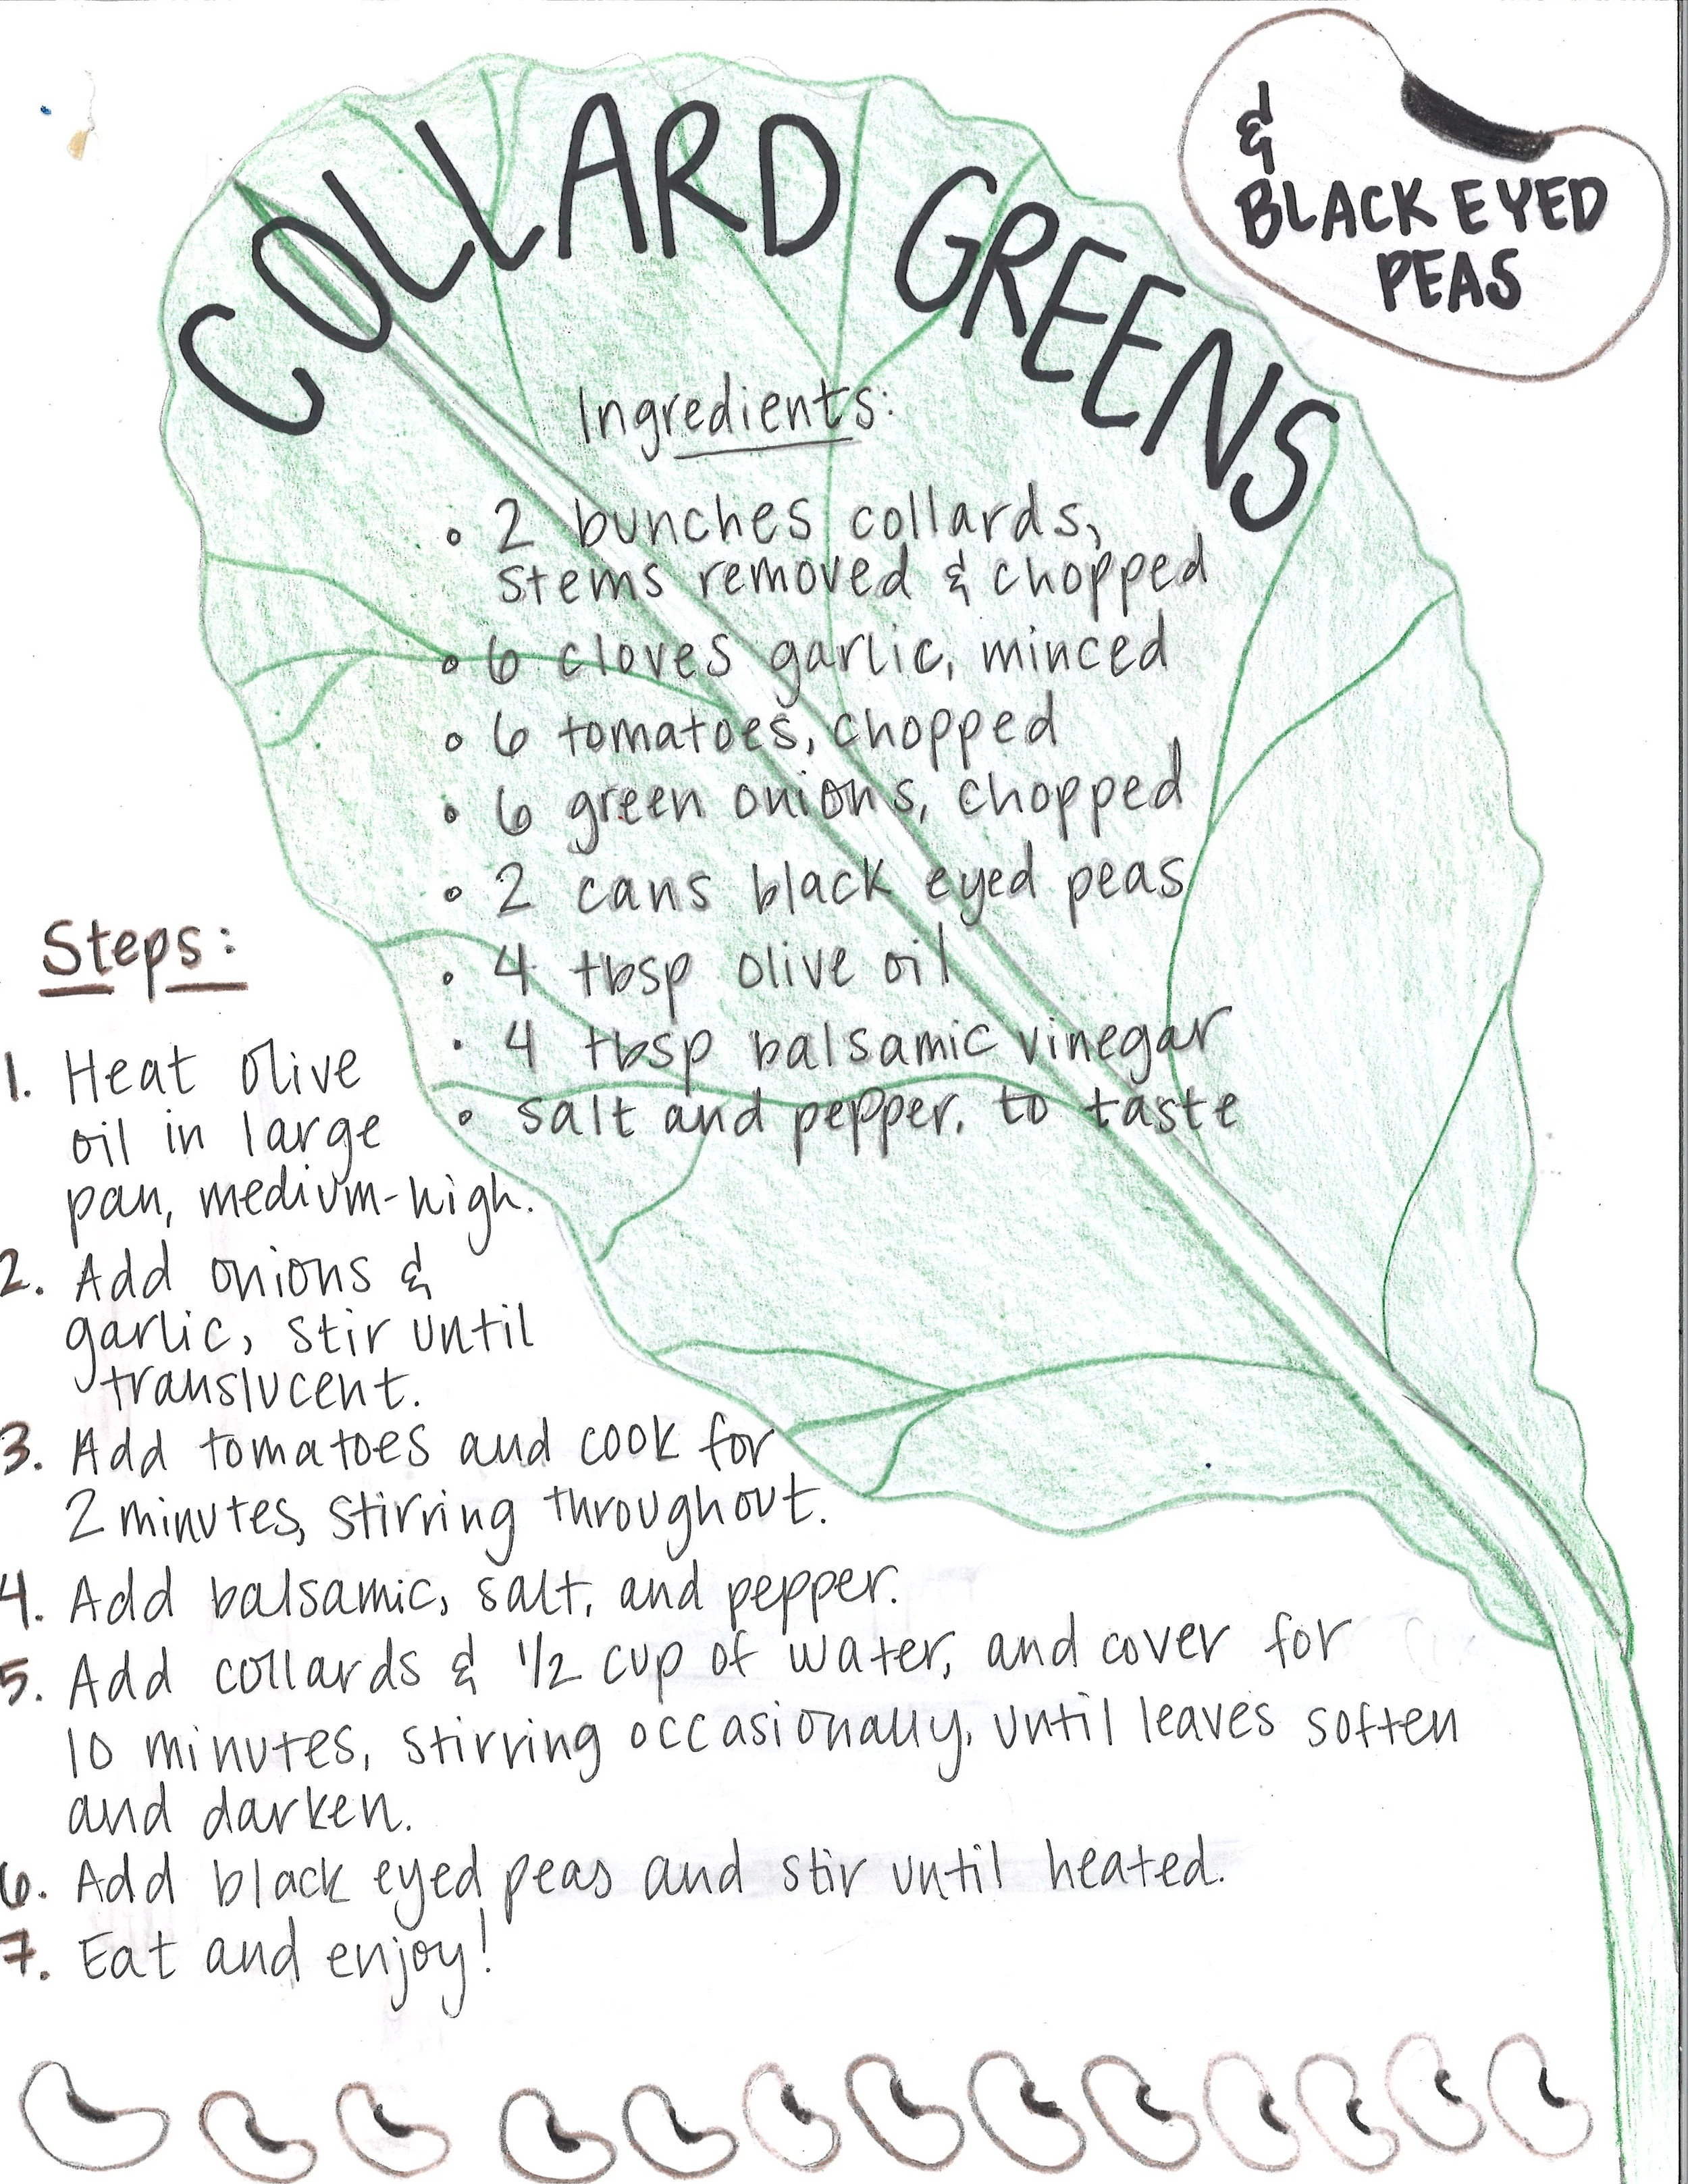 COLLARD GREENS
&
BLACK EYED
PEAS
Ingredients:
• 2 bunches collards,
stems removed & chopped
• 6 cloves garlic, minced
• 6 tomatoes, chopped
• 6 green onions, chopped
• 2 cans black eyed peas
• 4 tbsp olive oil
• 4 tbsp balsamic vinegar
• salt and pepper, to taste
Steps:
1. Heat olive
oil in large
pan, medium-high.
2. Add onions &
garlic, stir until
translucent.
3. Add tomatoes and cook for
2 minutes, stirring throughout.
4. Add balsamic, salt, and pepper.
5. Add collards & 1/2 cup of water, and cover for
10 minutes, stirring occasionally, until leaves soften
and darken.
6. Add black eyed peas and stir until heated.
7. Eat and enjoy!